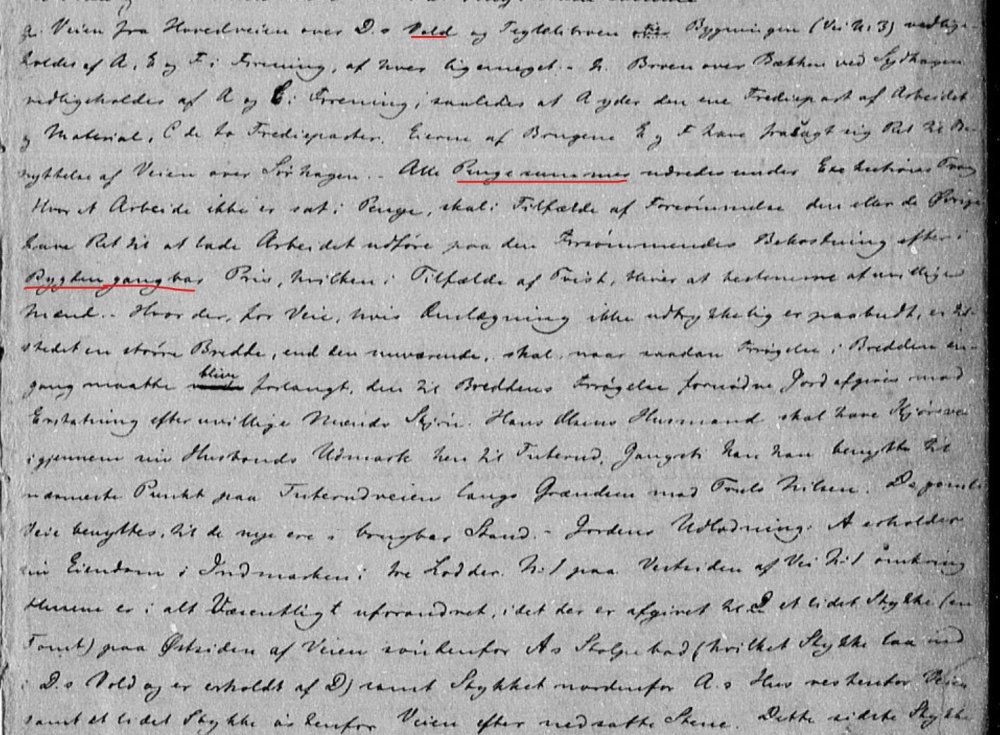 g. Veien fra Hovedveien over D.s Vold og Teglebroen Bygningen (Vei N. 3) vedlige-
holdes af A, E og F i Forening, af hver ligemeget. - h. Broen over Bækken ved Sydhagen
vedligeholdes af A og C i Forening, saaledes at A yder den ene Trediepart af Arbeidet
og Material, C de to Trediepaarter. Eierne af Brugene E og F have frasagt sig Ret til Be-
nyttelse af Veien over Sørhagen. - Alle Pengesummer udredes under Executions Tvang
Hvor et Arbeide ikke er sat i Penge, skal i Tilfælde af Forsømmelse den eller de Øvrige
have Ret til at lade Arbeidet udføre paa den Forsømmendes Bekostning efter i
Bygden gangbar Priis, hvilken i Tilfælde af Tvist, bliver at bestemme af uvillige
Mænd. - Hvor der, for Veie, hvis Omlægning ikke udtrykkelig er paabudt, er til-
stedet en større Bredde, end den nuværende, skal, naar saadan Forøgelse i Bredden en-
gang maatte blive forlangt, den til Breddens Forøgelse fornødne Jord afgives mod
Erstatning efter uvillige Mænds Skjøn. Hans Olsens Husmand skal have Kjørsvei
igjennem sin Husbonds Udmark hen til Tuterud, Gangsti kan han benytte til
nærmeste Punkt paa Tuterudveien langs Grændsen mod Troels Nilsen. De gamle
Veie benyttes, til de nye ere i brugbar Stand. - Jordens Udlodning: A erholder
sin Eiendom i Indmarken i tre Lodder. N. 1 paa Vestsiden af Vei N. 1 omkring
Husene er i alt Væsentligt uforandret, idet der er afgivet til D et lidet Stykke (en
Tomt) paa Østsiden af Veien søndenfor As Stolpebod (hvilket Stykke laa ind
i D.s Vold og er erholdt af D) samt Stykket nordenfor A.s Hus vestenfor Veien
samt et lidet Stykke østenfor Veien efter nedsatte Stene. Dette sidste Stykke